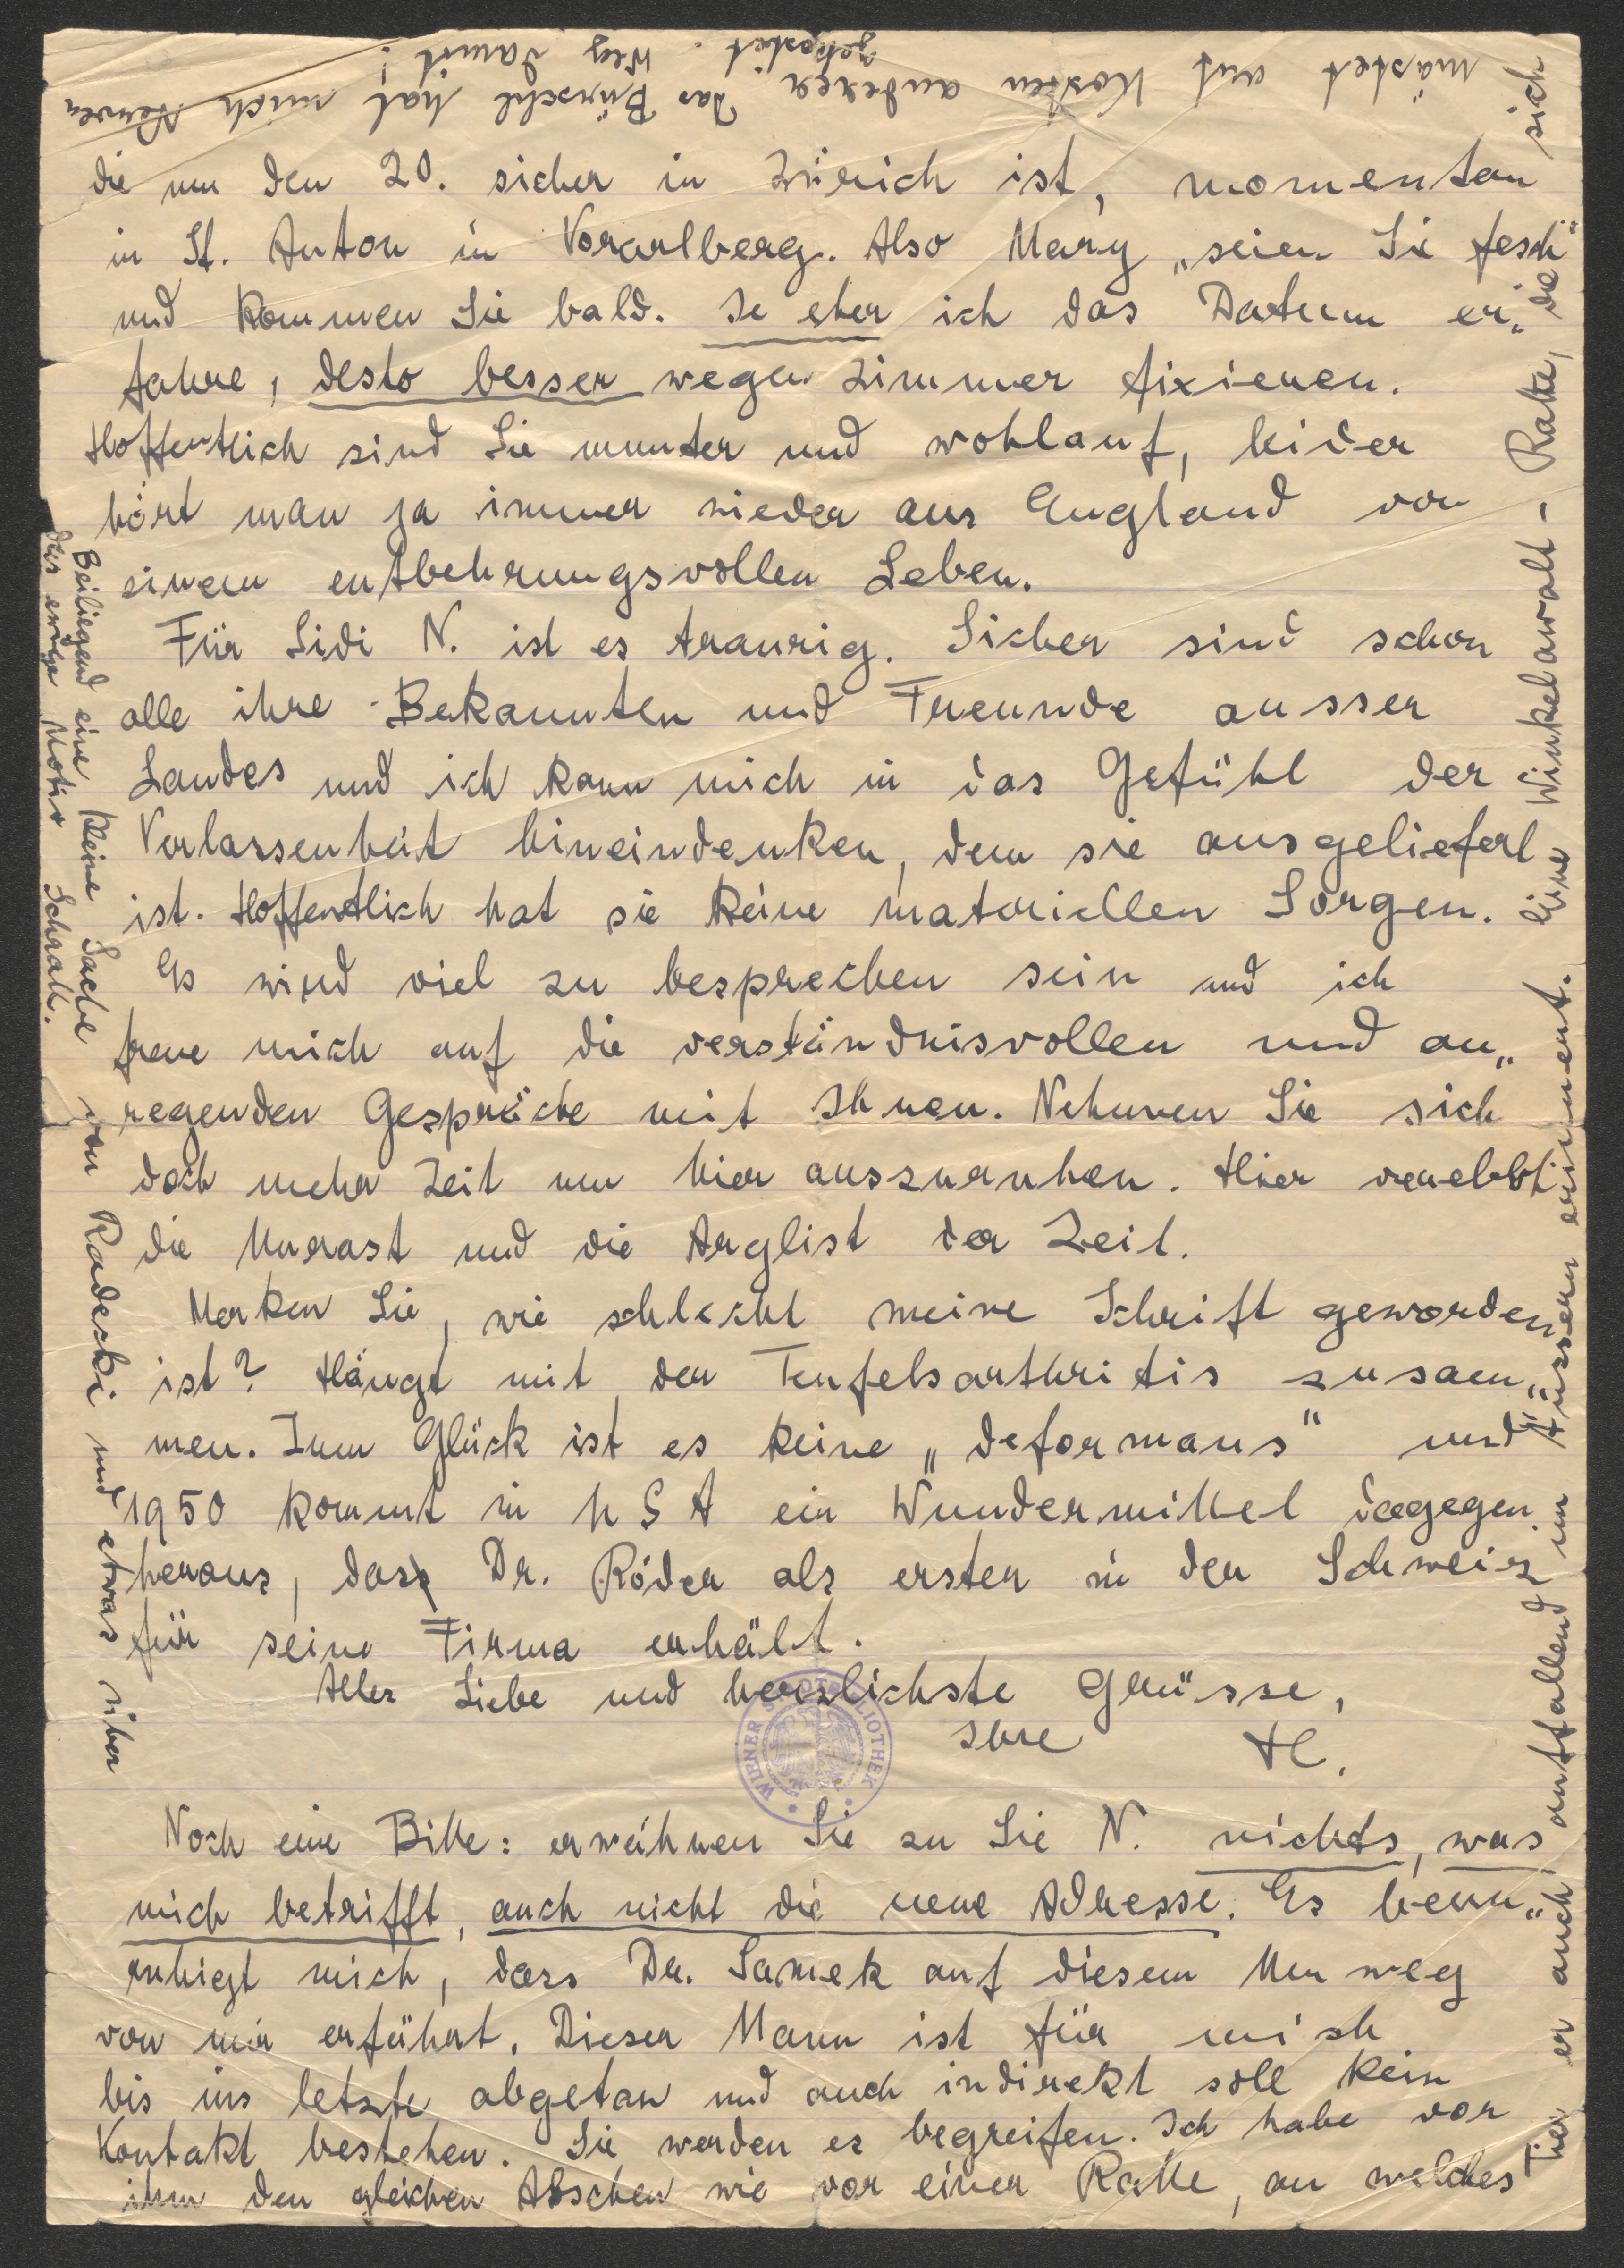 die um den 20. sicher in Zürich ist, momentan
in St. Anton in Vorarlberg. Also Mary „seien Sie fesch“
und kommen Sie bald. Je eher ich das Datum er„
fahre, desto besser wegen Zimmer fixieren.
Hoffentlich sind Sie munter und wohlauf, leider
hört man ja immer wieder aus England von
einem entbehrungsvollen Leben.
Für Sidi N. ist es traurig. Sicher sind schon
alle ihre Bekannten und Freunde ausser
Landes und ich kann mich in das Gefühl der
Verlassenheit hineindenken, dem sie ausgeliefert
ist. Hoffentlich hat sie keine materiellen Sorgen.
Es wird viel zu besprechen sein und ich
freue mich auf die verständnisvollen und an„
regenden Gespräche mit Ihnen. Nehmen Sie sich
doch mehr Zeit um hier auszuruhen. Hier verebbt
die Unrast und die Arglist der Zeit.
Merken Sie, wie schlecht meine Schrift geworden
ist? Hängt mit der Teufelsarthritis zusam„
men. Zum Glück ist es keine „deformans“ und
1950 kommt in USA ein Wundermittel dagegen
heraus, dass Dr. Röder als erster in der Schweiz
für seine Firma erhält.
Aller Liebe und herzlichste Grüsse,
Ihre H.
WIENER STADTBIBLIOTHEK
Noch eine Bitte: erwähnen Sie zu Sie N. nichts, was
mich betrifft, auch nicht die neue Adresse. Es beun„
ruhigt mich, dass Dr. Samek auf diesem Umweg
von mir erfährt. Dieser Mann ist für mich
bis ins letzte abgetan und auch indirekt soll kein
Kontakt bestehen. Sie werden es begreifen. Ich habe vor
ihm den gleichen Abscheu wie vor einer Ratte, an welches
Tier er auch auffallend im Äussern erinnert. Eine Winkelawalt- Ratte, die sich
mästet auf Kosten anderer. Das Bürschl hat mich Nerven
gekostet. Weg damit!
Beiliegend eine kleine Sache von Radecki und etwas über
das ewige Motiv Schratt.